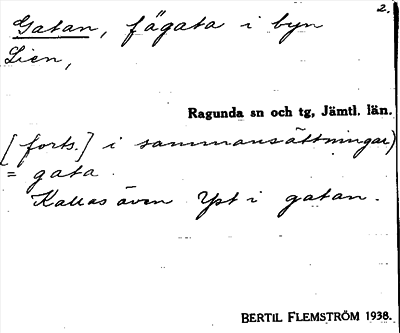 2.
Gatan, fägata i byn
Lien,
Ragunda sn och tg, Jämtl. län.
[forts.] i sammansättningar)
= gata.
Kallas även Yst i gatan.
BERTIL FLEMSTRÖM 1938.